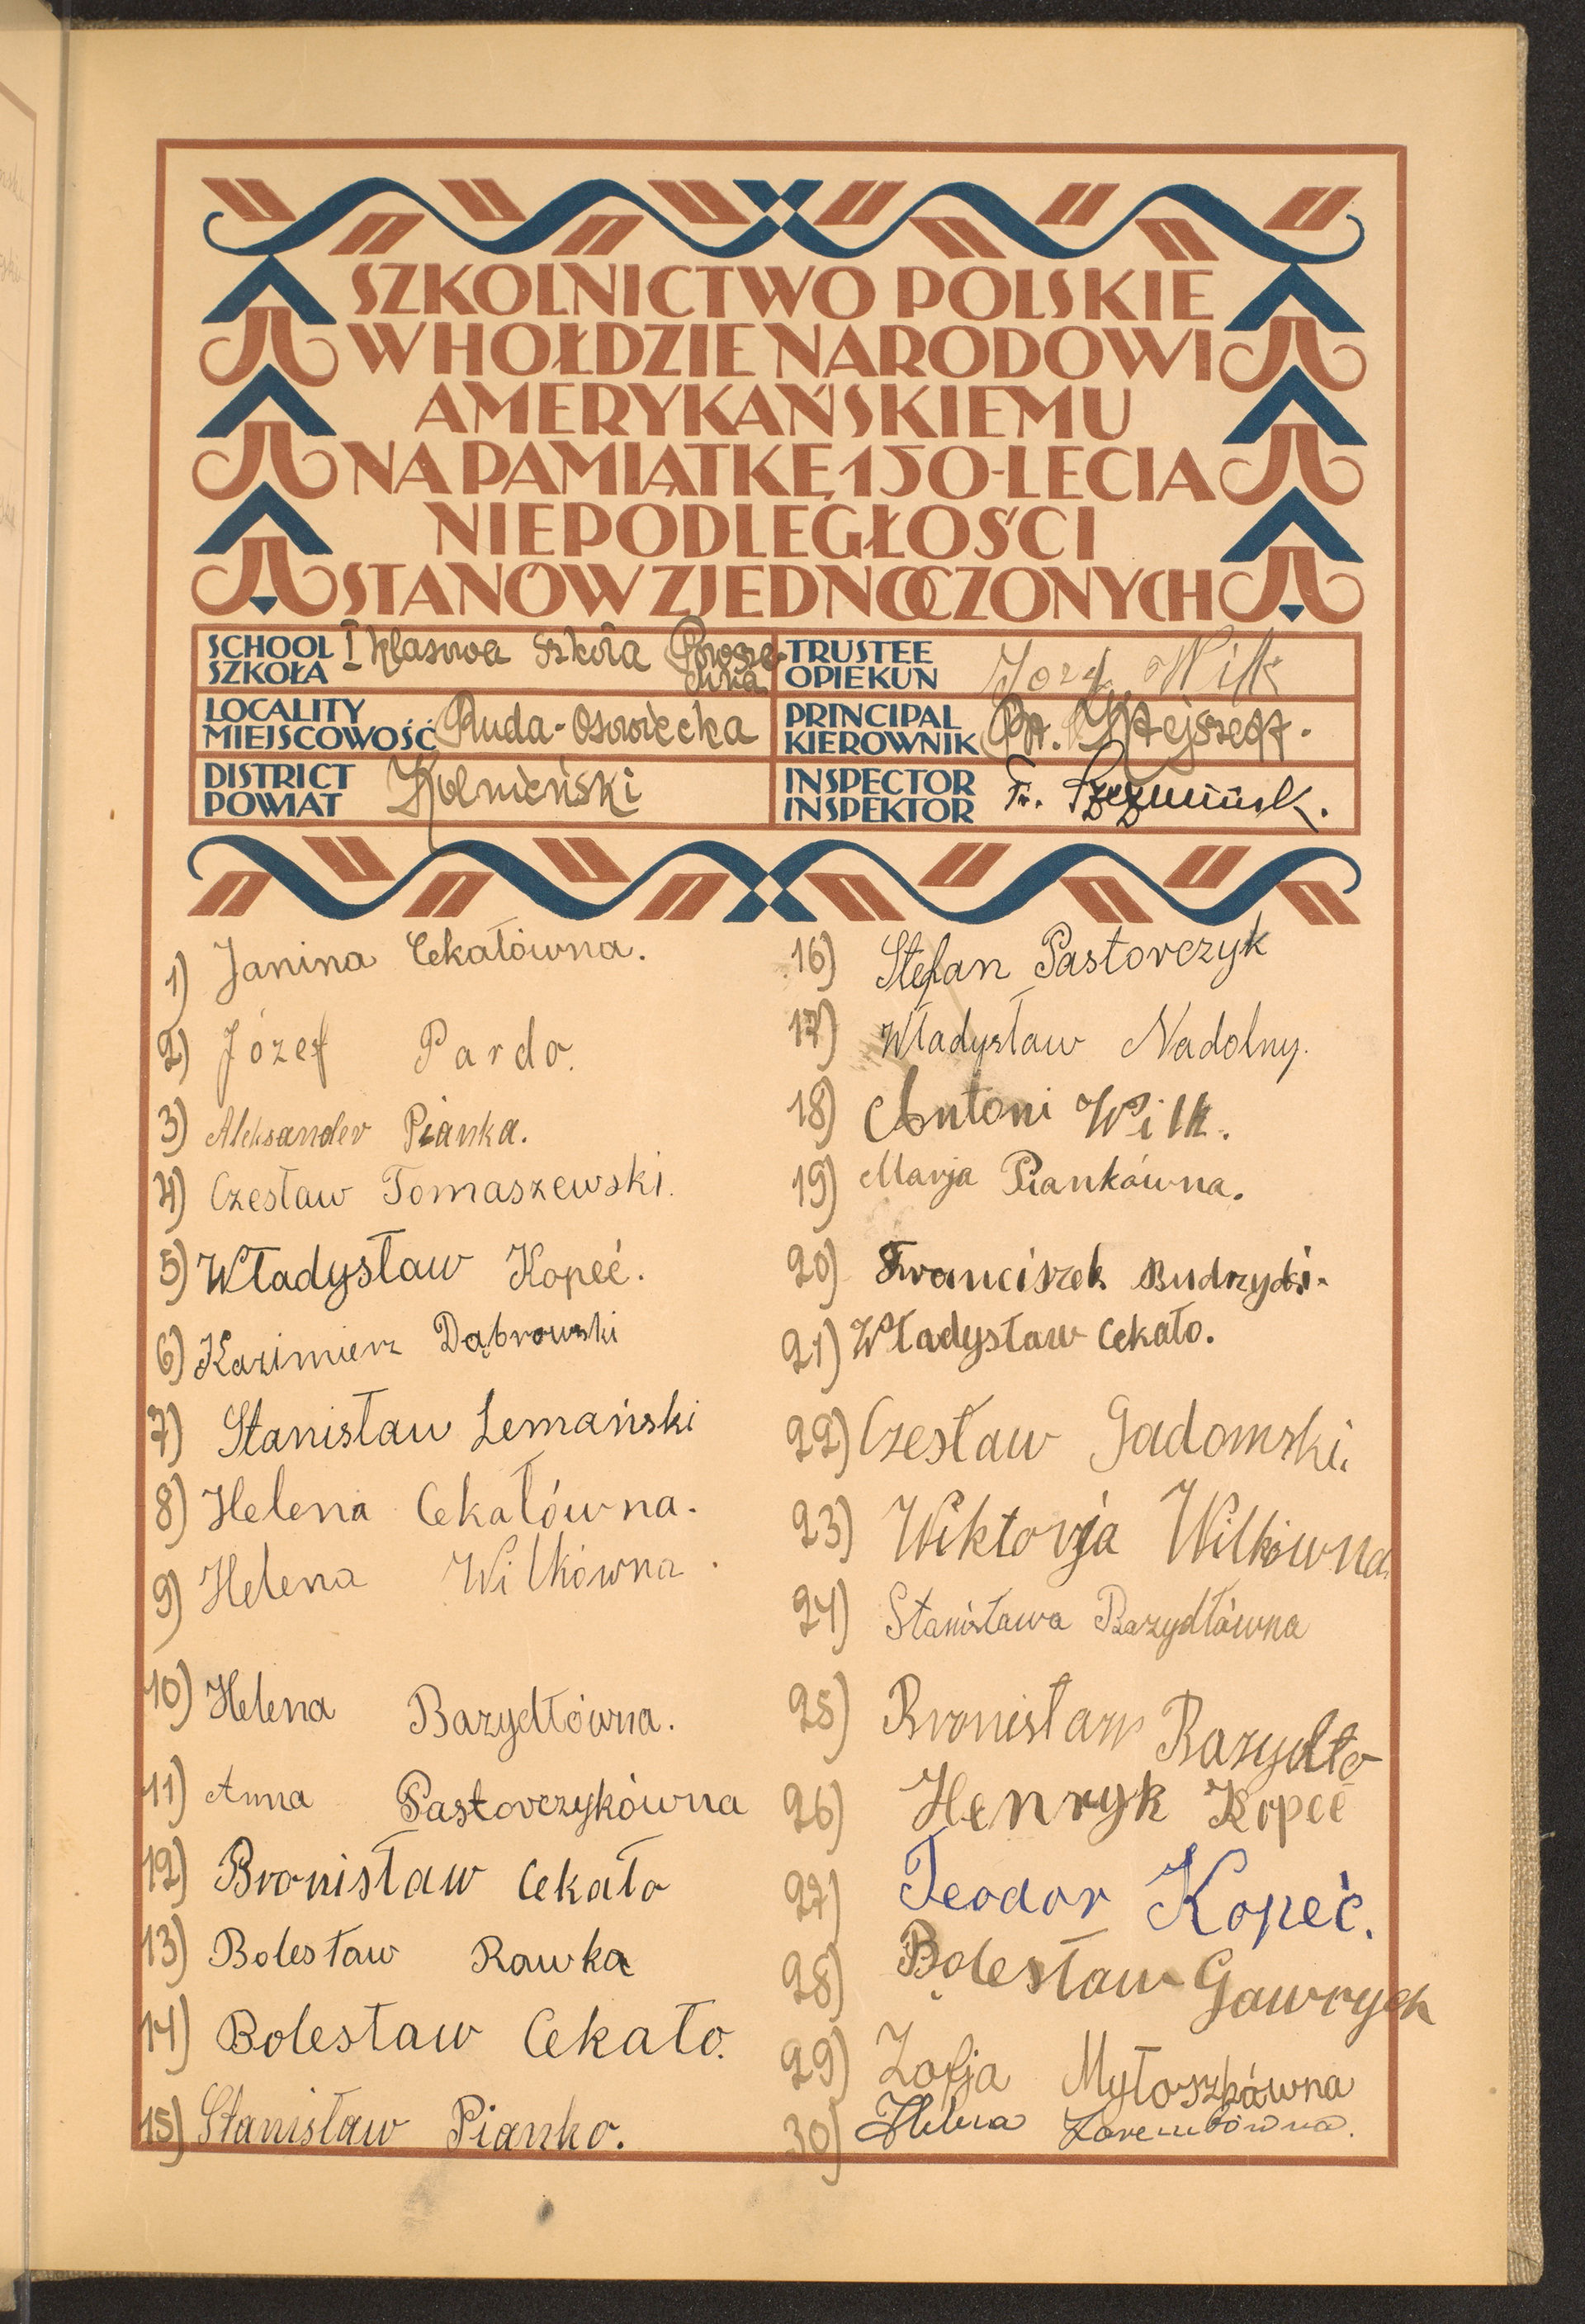 SZKOLNICTWO POLSKIE
W HOŁDZIE NARODOWI
AMERYKAŃSKIEMU
NA PAMIĄTKĘ 150-LECIA
NIEPODLEGŁOŚCI
STANÓW ZJEDNOCZONYCH
SCHOOL
SZKOŁA
I klasowa Szkoła Powsze-
chna
TRUSTEE
OPIEKUN
Józef Wilk
LOCALITY
MIEJSCOWOŚĆ
Ruda-Osowiecka
PRINCIPAL
KIEROWNIK
DISTRICT
POWIAT
Kolneński
INSPECTOR
INSPEKTOR
Fr.
1) Janina Cekałówna.
2) Józef Pardo.
3) Aleksander Pianka.
4) Czesław Tomaszewski.
5) Władysław Kopeć.
6) Kazimierz Dąbrowski
7) Stanisław Lemański
8) Helena Cekałówna.
9) Helena Wilkówna.
10) Helena Bazydłówna.
11) Anna Pastorczykówna
12) Bronisław Cekało
13) Bolesław Rawka
14) Bolesław Cekało.
15) Stanisław Pianko.
16) Stefan Pastorczyk
17) Władysław Nadolny.
18) Antoni Wilk.
19) Marja Piankówna.
20) Franciszek Budzyski.
21) Władysław Cekało.
22) Czesław Gadomski.
23) Wiktorja Wilkówna.
24) Stanisława Bazydłówna
25) Bronisław Bazydło
26) Henryk Kopeć
27) Teodor Kopeć.
28) Bolesław Gawrych
29) Zofja Mytoszkówna
30) Helena Zarembówna.